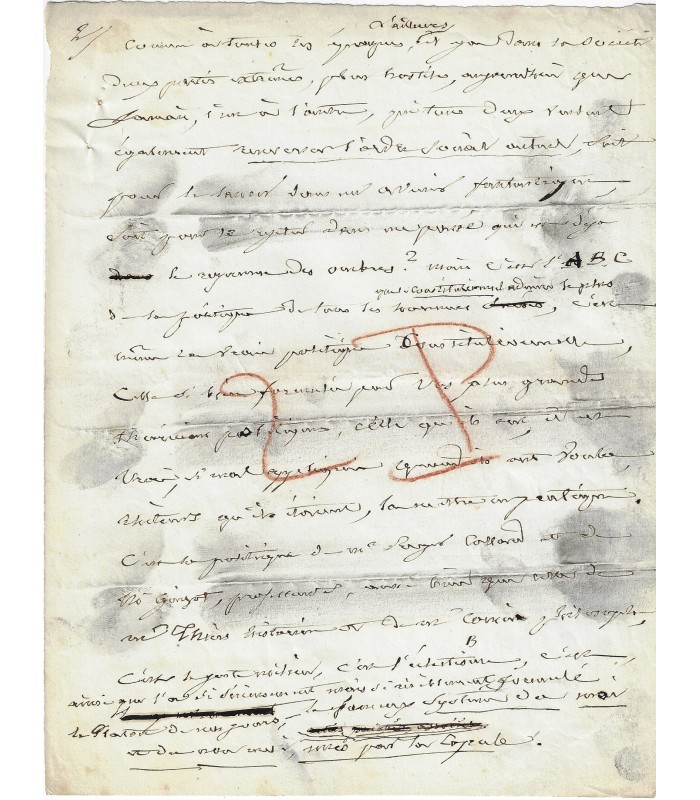 2/
d'ailleurs
Comme à toutes les époques, il y a dans la Société
deux partis extrêmes, plus hostiles, aujourd'hui que
jamais, l'un à l'autre, qui tous deux veulent
également renverser l'ordre social actuel, soit
pour le lancer dans un avenir fantastique,
soit pour le rejeter dans un passé qui est déjà
le royaume des ombres? Mais c'est l'A B C
que constitutionnel admire le plus
de la politique de tous les hommes c'est
même la vraie politique Constitutionnelle,
Celle si bien formulée par nos plus grands
théoriciens politiques, celle qu'ils ont, il est
vrai, si mal appliquée quand ils ont voulu,
rhéteurs qu'ils étaient, la mettre en pratique.
C'est la politique de Mr. Royer Collard et de
Mr Guizot, professeurs, aussi bien que celle de
Mr Thiers historien et de Mr Cousin philosophe,
C'est le juste milieu, c'est l'éclectisme, c'est,
ainsi que l'a si disertement formulé
le Platon de nos jours, le fameux système du moi
et du non moi par la